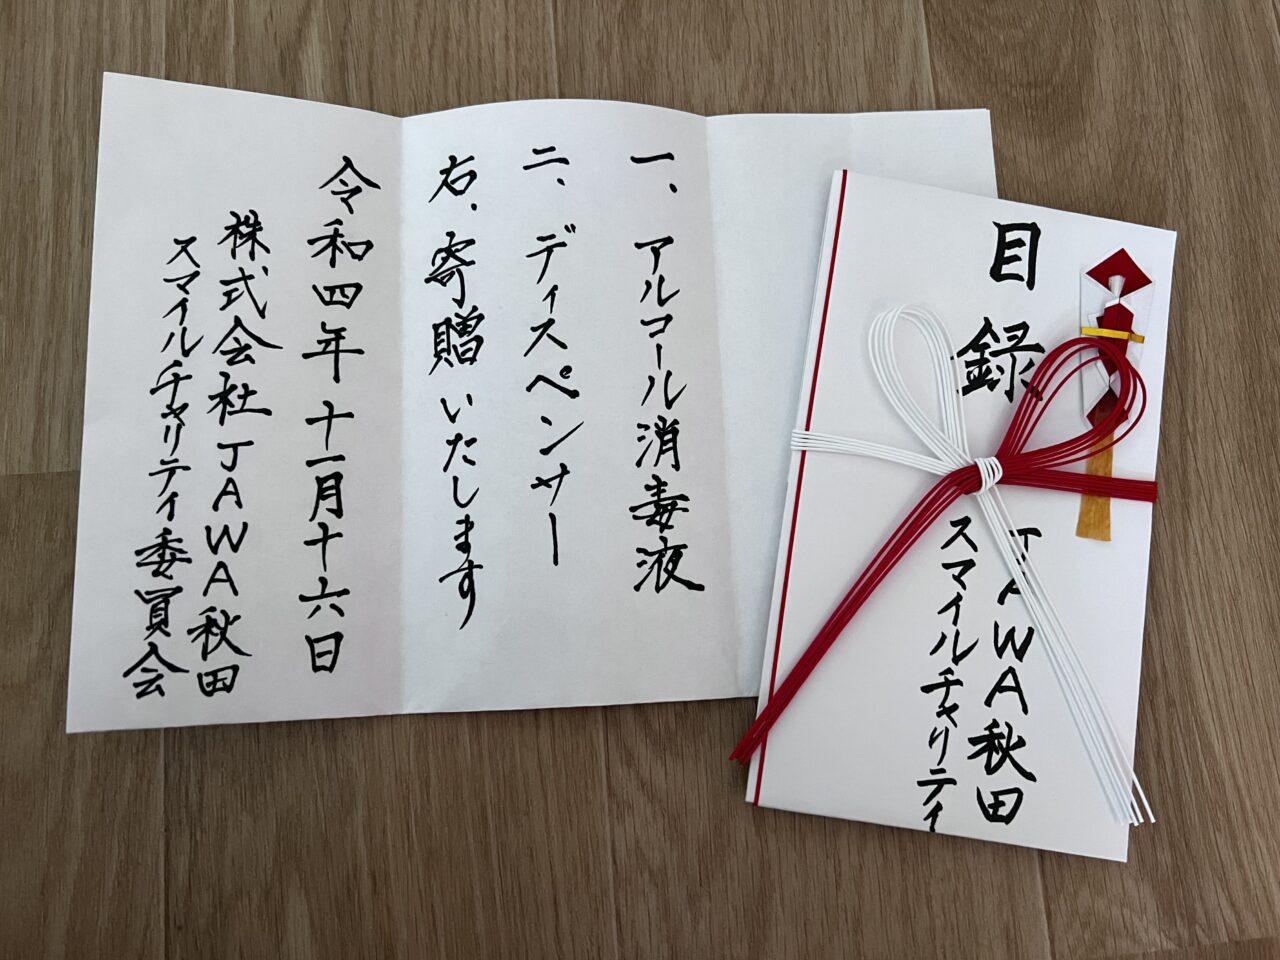 目録
JAWA秋田
スマイルチャリティ
一、アルコール消毒液
二、ディスペンサー
右、寄贈いたします
令和四年十一月十六日
株式会社JAWA秋田
スマイルチャリティ委員会